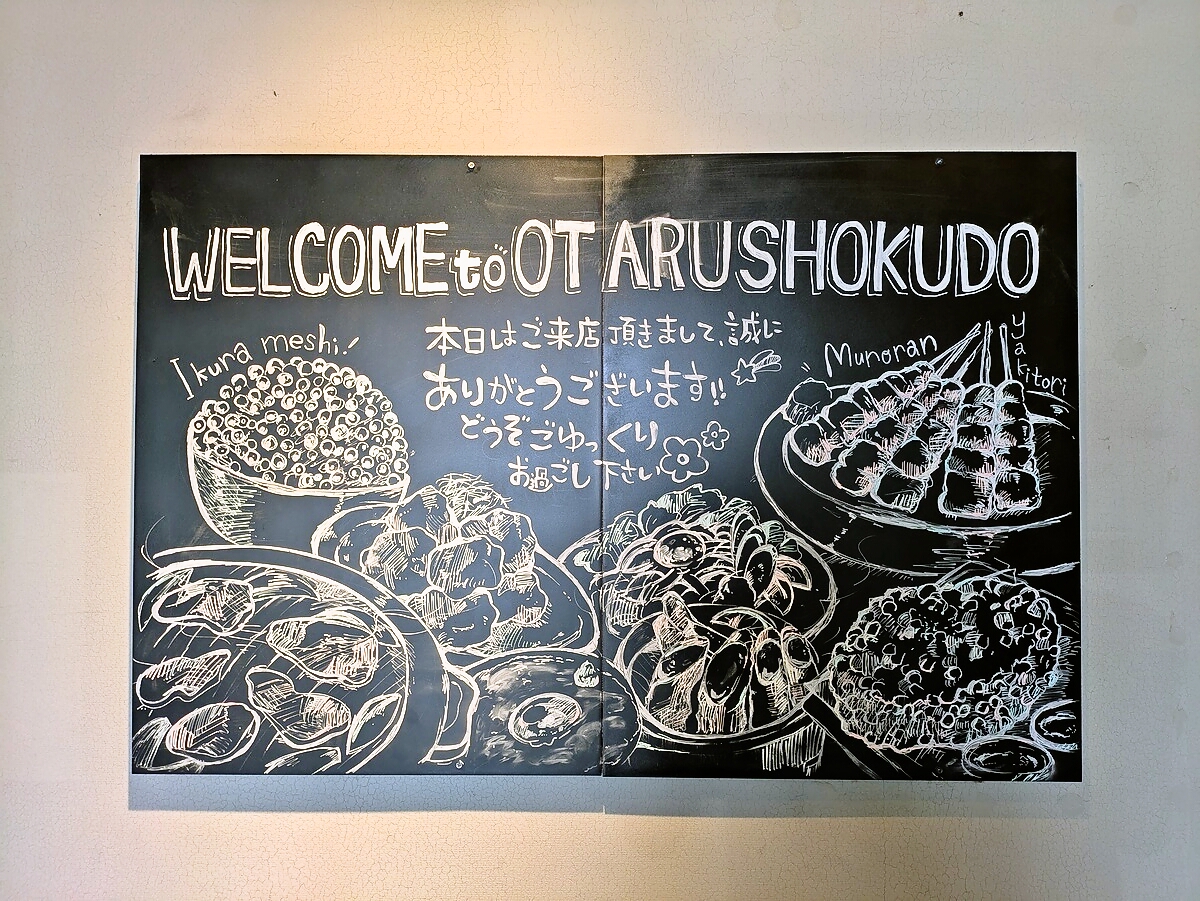 WELCOME to OTARUSHOKUDO
本日はご来店頂きまして、誠に
ありがとうございます!!
どうぞごゆっくり
お過ごし下さい
Ikura meshi!
Muroran
yakitori